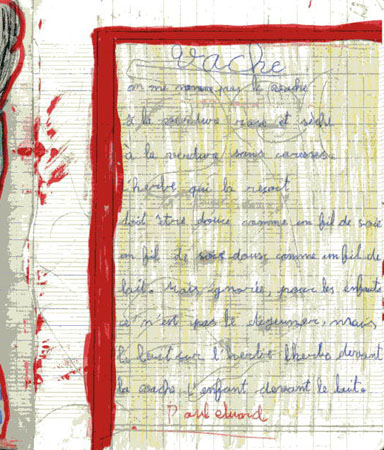 vache
on ne mène pas la vache
à la verdure rase et sèche
à la verdure sans caresses.
l'herbe qui la reçoit
doit être douce comme un fil de soie
un fil de soie doux comme un fil de
lait. mais ignorée, pour les enfants
ce n'est pas le déjeuner, mais
le lait sur l'herbe l'herbe devant
la vache, l'enfant devant le lait.
Paul eluard